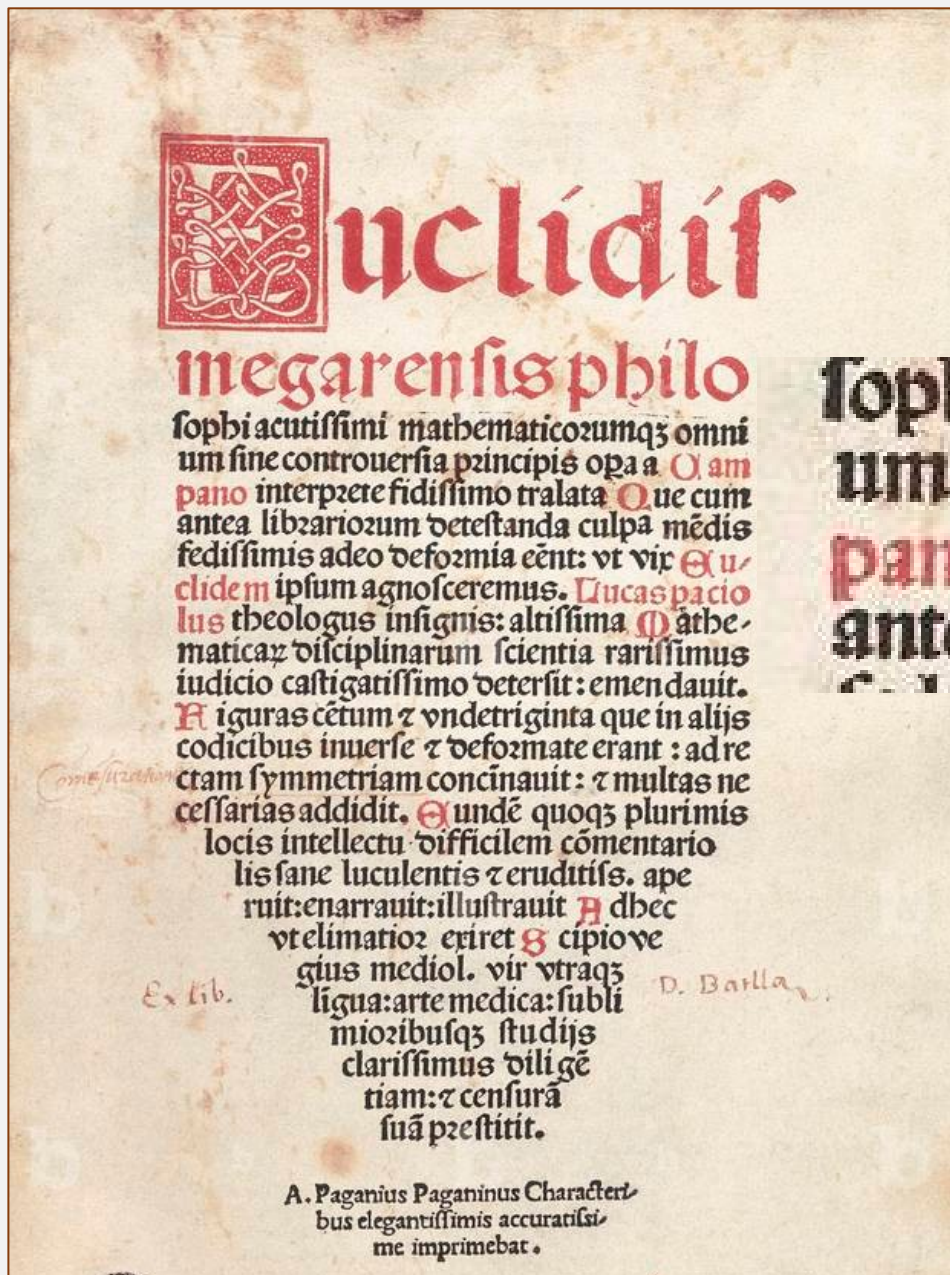 Euclidiſ
megarenſis philo
ſophi acutiſſimi mathematicoꝛumqꝫ omni
um ſine controuerſia pꝛincipis oꝑa a Cam
pano interpꝛete fidiſſimo tralata Que cum
antea libꝛarioꝛum deteſtanda culpa mēdis
fediſſimis adeo deformia eēnt: vt vix Eu⸗
clidem ipſum agnoſceremus. Lucas pacio
lus theologus inſignis: altiſſima Mathe⸗
maticaꝝ diſciplinarum ſcientia rariſſimus
iudicio caſtigatiſſimo deterſit: emendauit.
Figuras cētum ⁊ vndetriginta que in alijs
codicibus inuerſe ⁊ defoꝛmate erant: ad re
ctam ſymmetriam concīnauit: ⁊ multas ne
ceſſarias addidit. Eundē quoqꝫ plurimis
locis intellectu difficilem cōmentario
lis ſane luculentis ⁊ eruditiſs. ape
ruit: enarrauit: illuſtrauit Adhec
vt elimatioꝛ exiret Scipio ve
gius mediol. vir vtraqꝫ
līgua: arte medica: ſubli
mioꝛibuſqꝫ ſtudijs
clariſſimus diligē
tiam: ⁊ cenſurā
ſuā pꝛeſtitit.
Ex lib. D. Barlla
A. Paganius Paganinus Characteri⸗
bus elegantiſſimis accuratiſsi⸗
me imprimebat.
ſoph
um
pan
ante